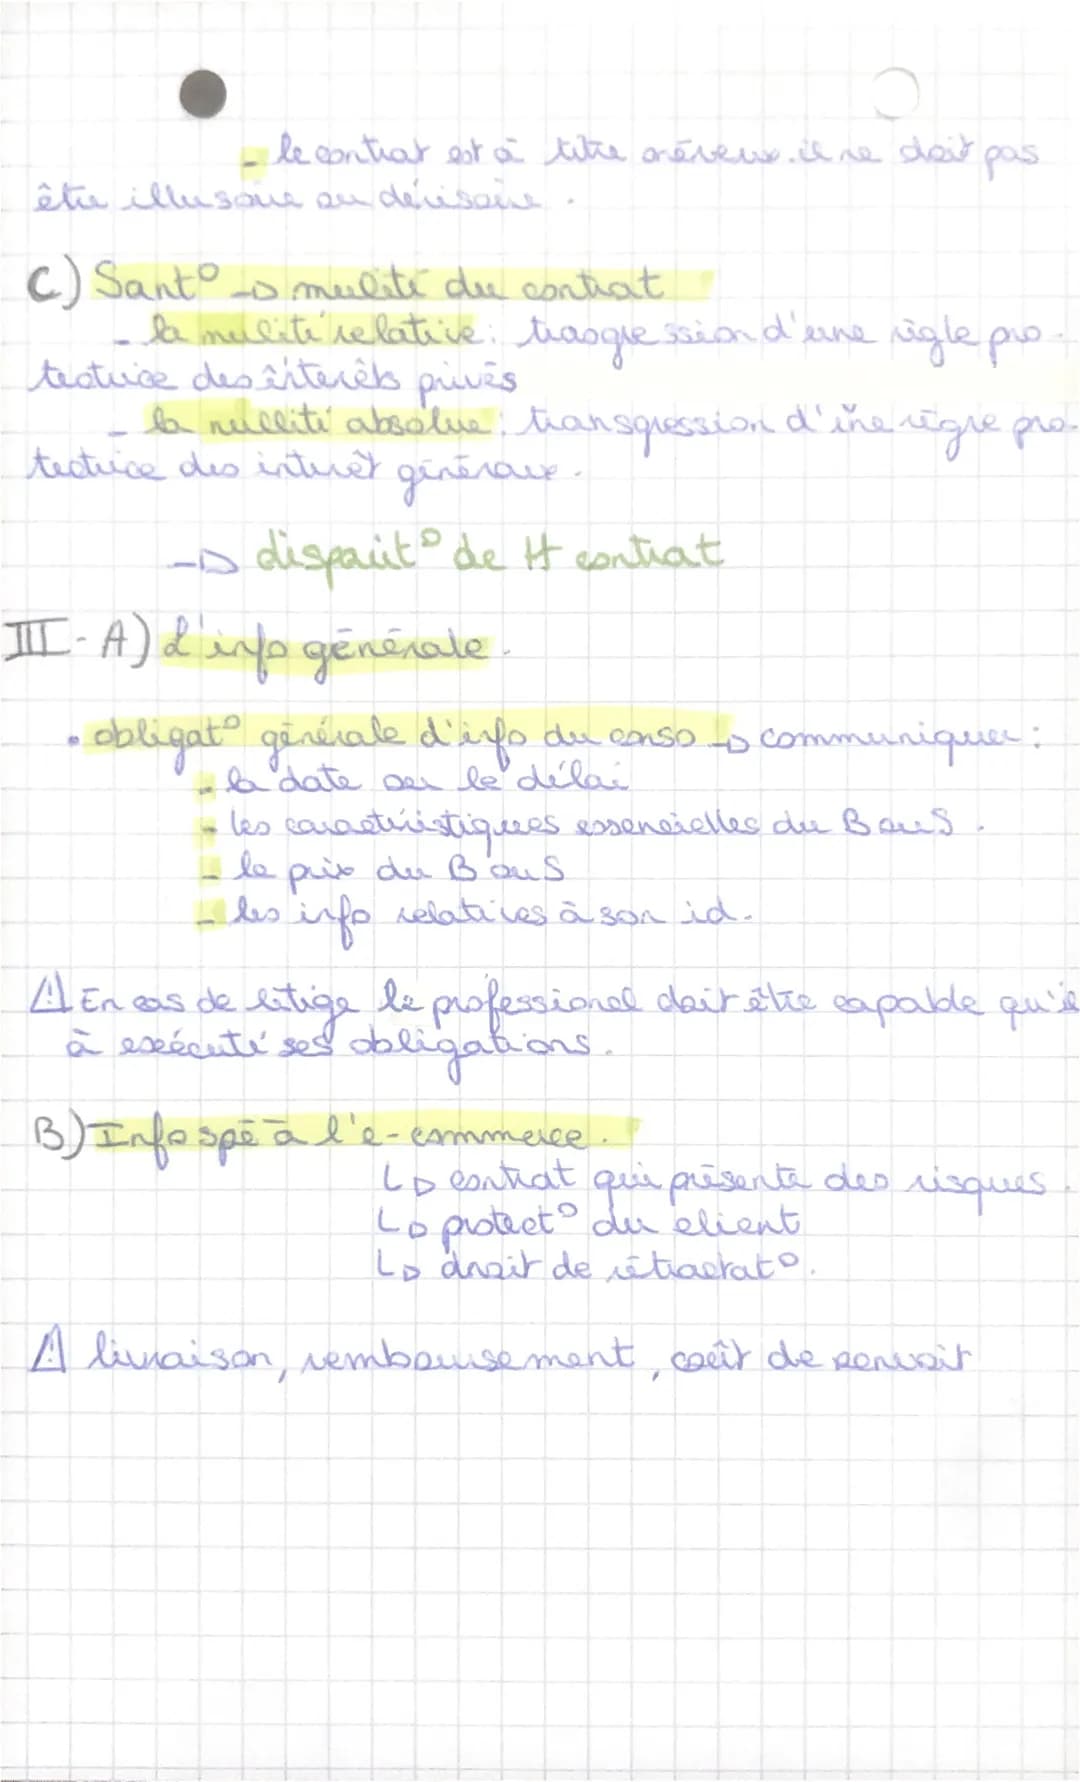 - le contrat est à titre onéreux. il ne doit pas
être illusoire ou dérisoire.
C) Sant° → nullité du contrat
- la nullité relative : trasgression d'une règle pro-
tectrice des intérêts privés
- la nullité absolue : transgression d'une règre pro-
tectrice des interêt généraux.
→ disparit° de H contrat
III - A) L'info générale.
• obligat° générale d'info du conso → communiquer :
- la date ou le délai
- les caractéristiques essencielles du B ou S.
- le prix du B ou S
- les info relatives à son id.
⚠ En cas de litige le professionel doit être capable qu'il
à exécuté ses obligations.
B) Info spé à l'e-commerce.
↳ contrat qui présente des risques.
↳ protect° du client
↳ droit de rétractat°.
⚠ livraison, remboursement, coût de renvoit